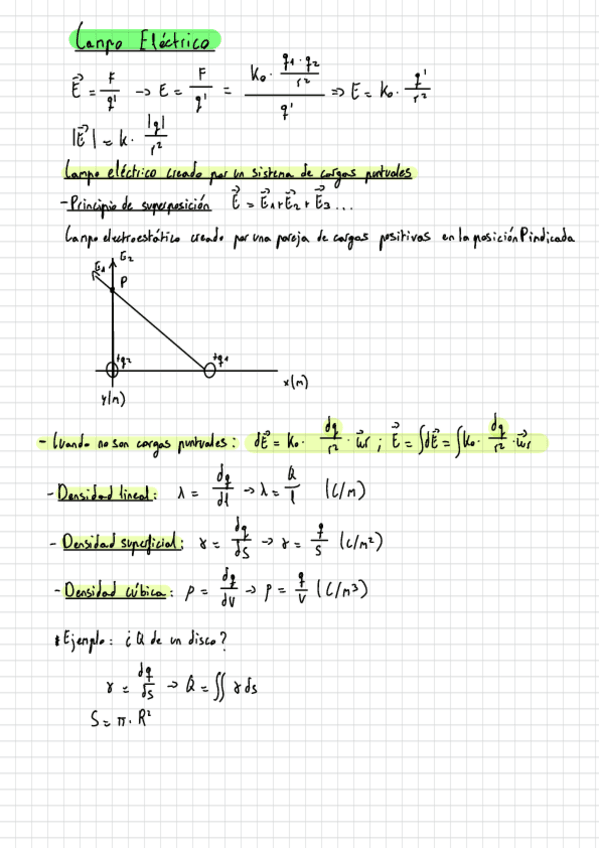 Campo Eléctrico
E⃗ = F/q' → E = F/q' = (K₀ · q₁·q₂/r²)/q' ⇒ E = K₀ · q'/r²
|E⃗| = k · |q|/r²
Campo eléctrico creado por un sistema de cargas puntuales
- Principio de superposición E⃗ = E⃗₁+E⃗₂+E⃗₃...
Campo electroestático creado por una pareja de cargas positivas en la posición P indicada
E₁ E₂
P
+q₂ +q₁
x(m)
y(m)
- Cuando no son cargas puntuales: dE⃗ = K₀ · dq/r² · u⃗r ; E⃗ = ∫dE⃗ = ∫K₀ · dq/r² · u⃗r
- Densidad lineal: λ = dq/dl → λ = Q/l (C/m)
- Densidad superficial: γ = dq/dS → γ = q/S (C/m²)
- Densidad cúbica: ρ = dq/dV → ρ = q/V (C/m³)
* Ejemplo: ¿Q de un disco?
γ = dq/ds → Q = ∬ γ ds
S = π · R²